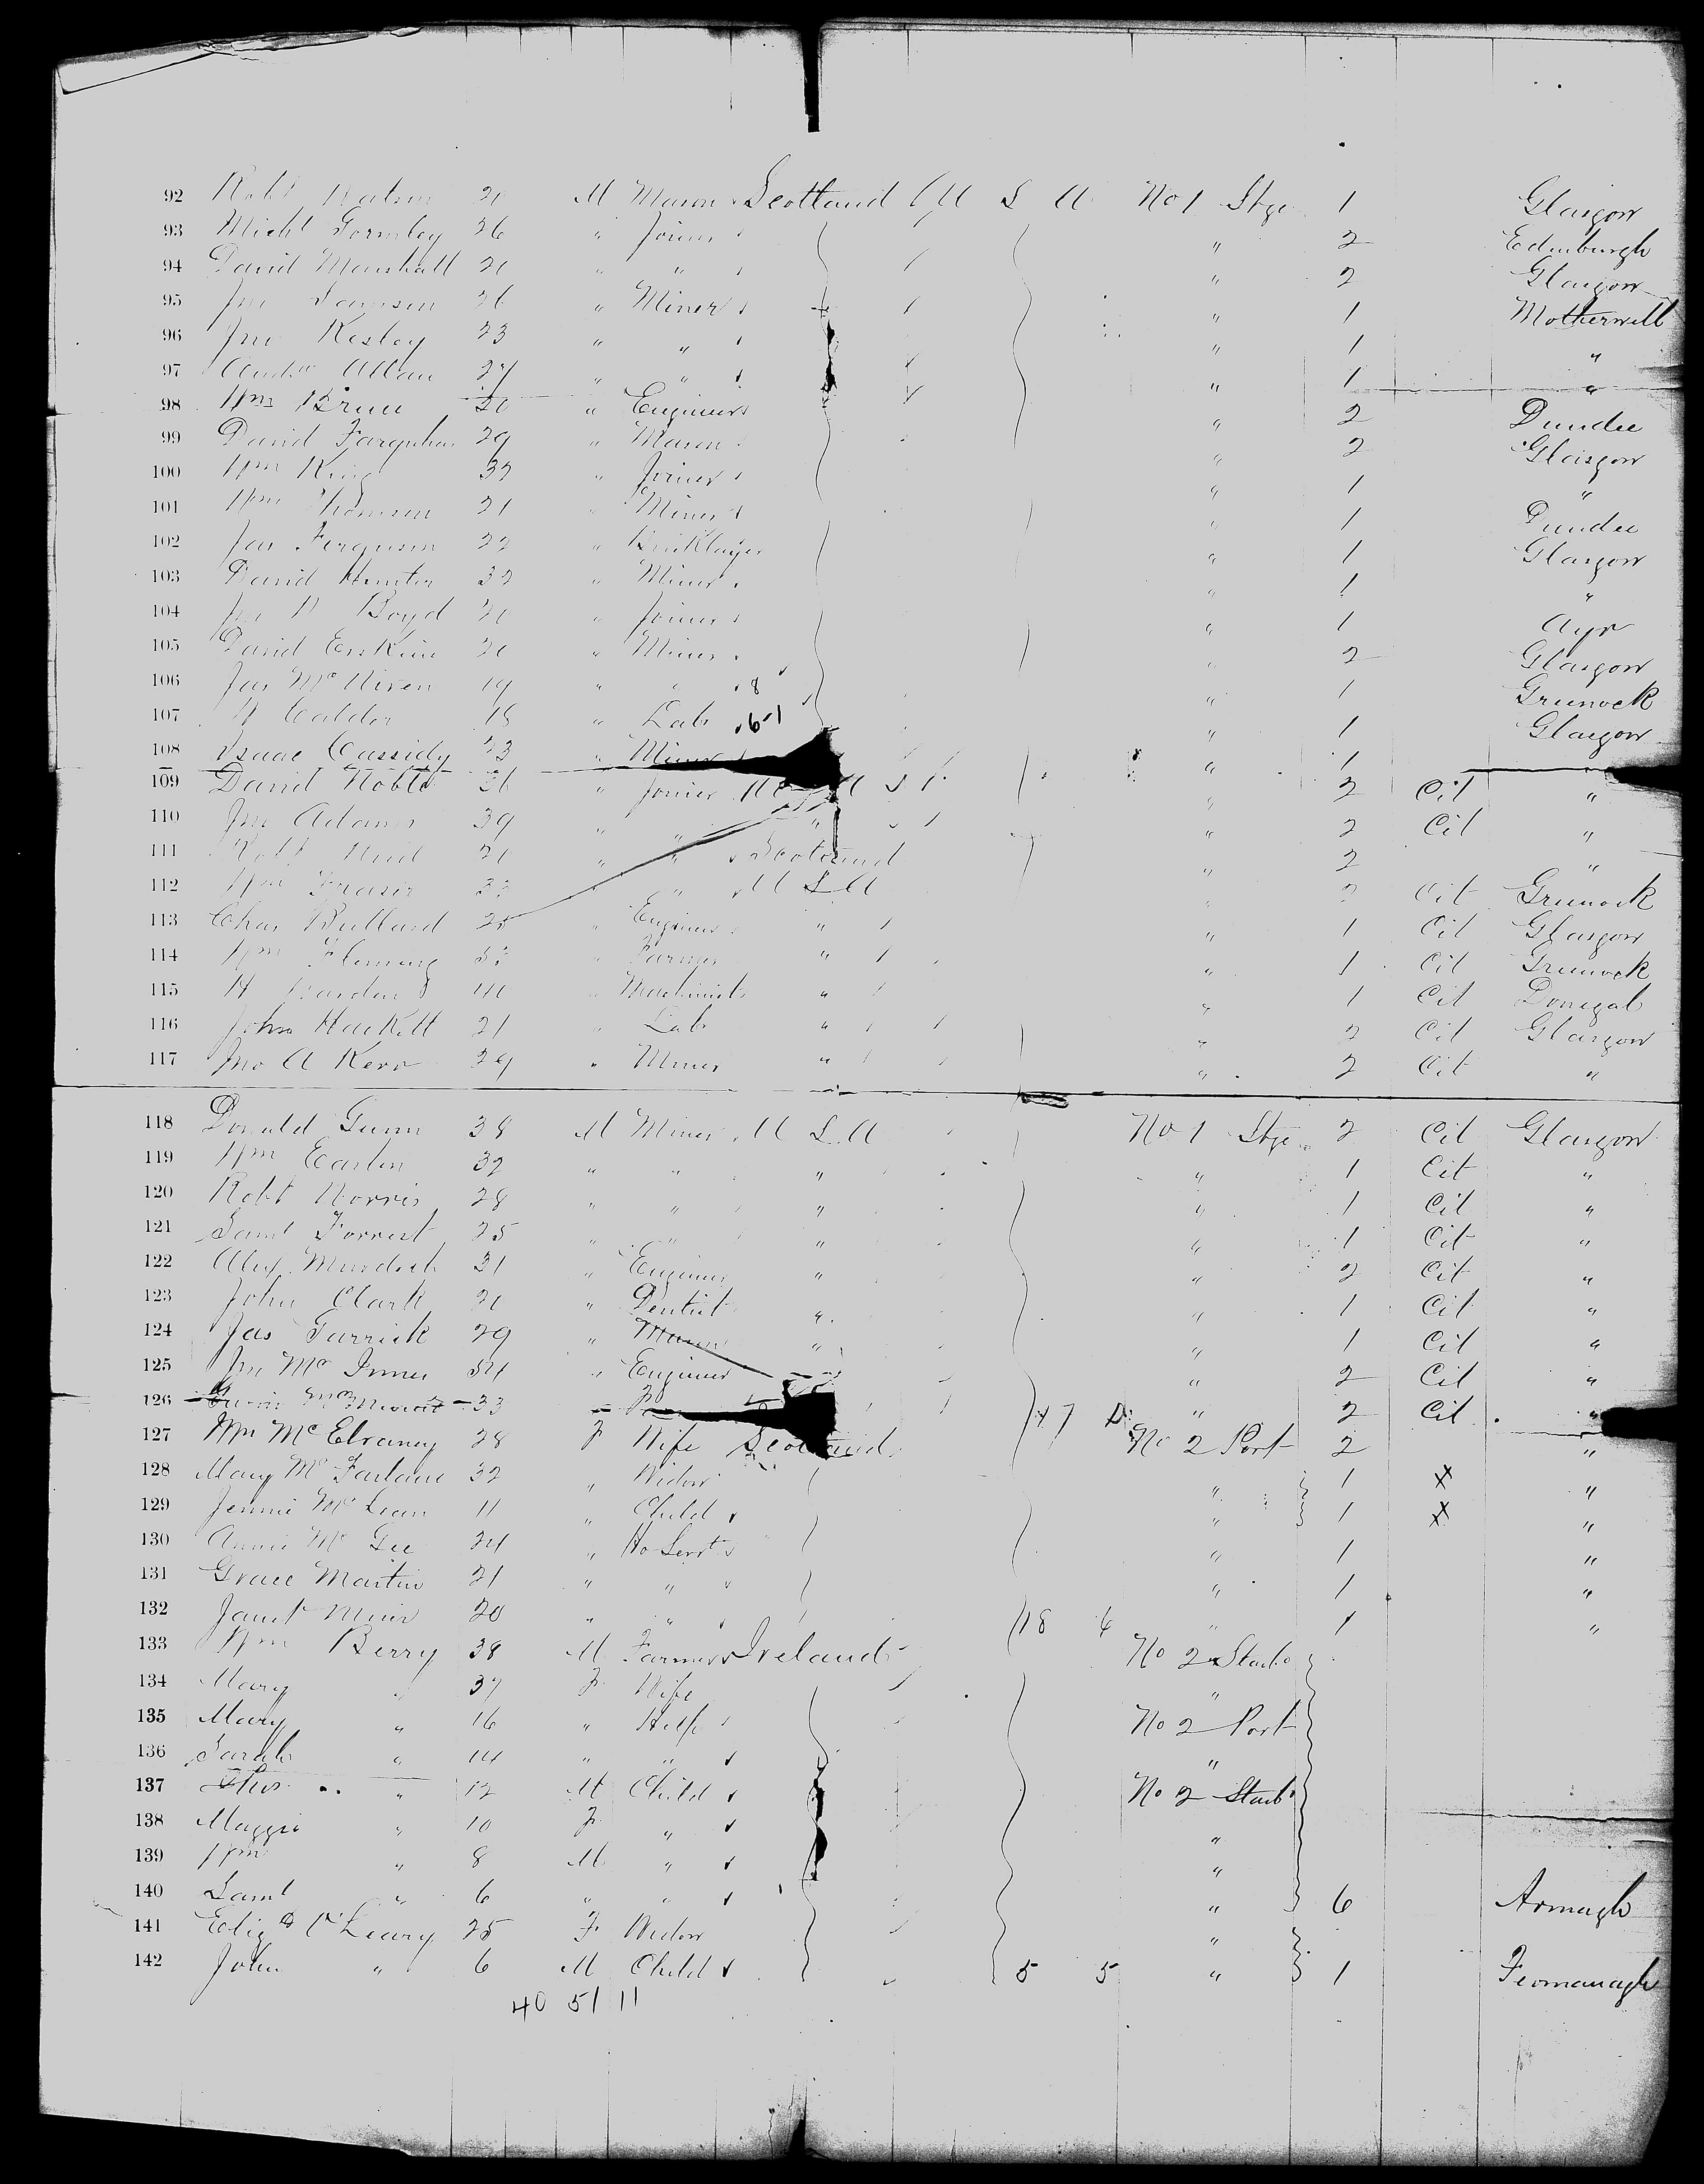 92 Robt Watson 20 M Mason Scotland U S A No 1 Stge 1 Glasgow
93 Michl Gormley 26 " Joiner " 2 Edinburgh
94 David Marshall 20 " " " 2 Glasgow
95 Jno 26 " Miner " 1 Motherwell
96 Jno Kesley 23 " " " 1 "
97 Andw Allan 24 " " " 1 "
98 Wm Bruce 20 " Engineer " 2 Dundee
99 David Farquhar 29 " Mason " 2 Glasgow
100 Wm King 32 " Joiner " 1 "
101 Wm Thomson 21 " Miner " 1 Dundee
102 Jas Ferguson 22 " Bricklayer " 1 Glasgow
103 David Hunter 32 " Miner " 1 "
104 Jno Boyd 20 " Joiner " 1 Ayr
105 David Erskine 20 " Miner " 2 Glasgow
106 Jas McNiven 19 " " 8 " 1 Greenock
107 Calder 18 " Lab 6-1 " 1 Glasgow
108 Isaac Cassidy 23 " Miner " 1
109 David Noble 36 " Joiner " 2 Cit "
110 Jno Adams 39 " " " " 2 Cit "
111 Robt Reid 21 " " Scotland " 2 "
112 Wm Fraser 33 " " U S A " 2 Cit Greenock
113 Chas Bullard 25 " Engineer " " 1 Cit Glasgow
114 Wm Fleming " Farmer " " 1 Cit Greenock
115 " Machinist " " 1 Cit Donegal
116 John Hackett 21 " Lab " " 2 Cit Glasgow
117 Jno A Kerr 29 " Miner " " 2 Cit "
118 Donald Gunn 38 M Miner U S A No 1 Stge 2 Cit Glasgow
119 Wm 32 " " " " 1 Cit "
120 Robt Norris 28 " " " " 1 Cit "
121 Saml Forrest 25 " " " " 1 Cit "
122 Alex Murdoch 31 " Engineer " " 2 Cit "
123 John Clark 20 " Dentist " " 1 Cit "
124 Jas Garrick 29 " Mason " " 1 Cit "
125 Jno McInnes 34 " Engineer " 2 Cit "
126 33 " 47 " 2 Cit "
127 Mrs McElraney 28 F Wife Scotland No 2 Port 2 "
128 Mary McFarlane 32 " Widow " 1 X "
129 Jennie McLean 11 " Child " 1 X "
130 Annie McGee 24 " Ho Servt " 1 "
131 Grace Martin 21 " " " " 1 "
132 Janet Muir 20 " " 18 4 " 1 "
133 Wm Berry 38 M Farmer Ireland No 2 Starb
134 Mary " 37 F Wife "
135 Mary " 16 " Help No 2 Port
136 Sarah " 14 " " "
137 Thos " 12 M Child No 2 Starb
138 Maggie " 10 F " "
139 Wm " 8 M " "
140 Saml " 6 " " " 6 Armagh
141 Eliz O'Leary 25 F Widow "
142 John " 6 M Child 5 5 " 1 Fermanagh
40 51 11